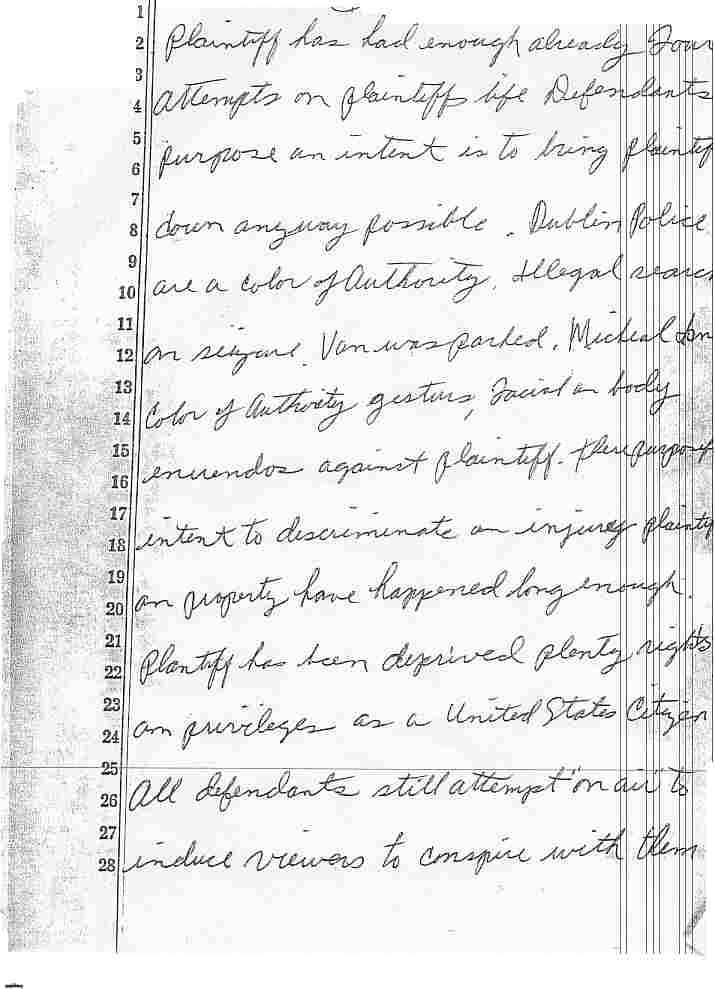 1
2 Plaintiff has had enough already Four
3
4 attempts on plaintiffs life Defendants
5
6 purpose an intent is to bring plaintif
7
8 down anyway possible. Dublin Police
9
10 are a color of Authority. Illegal searc
11
12 an seizure. Van was parked. Micheal
13
14 Color of Authority gesturs, Facial an body
15
16 enuendos against plaintiff. There purpose
17
18 intent to descriminate an injurey plaintif
19
20 an property have happened long enough.
21
22 Plantiff has been deprived plenty rights
23
24 an privileges as a United States Citizen
25
26 All defendants still attempt "on air" to
27
28 induce viewers to conspire with them